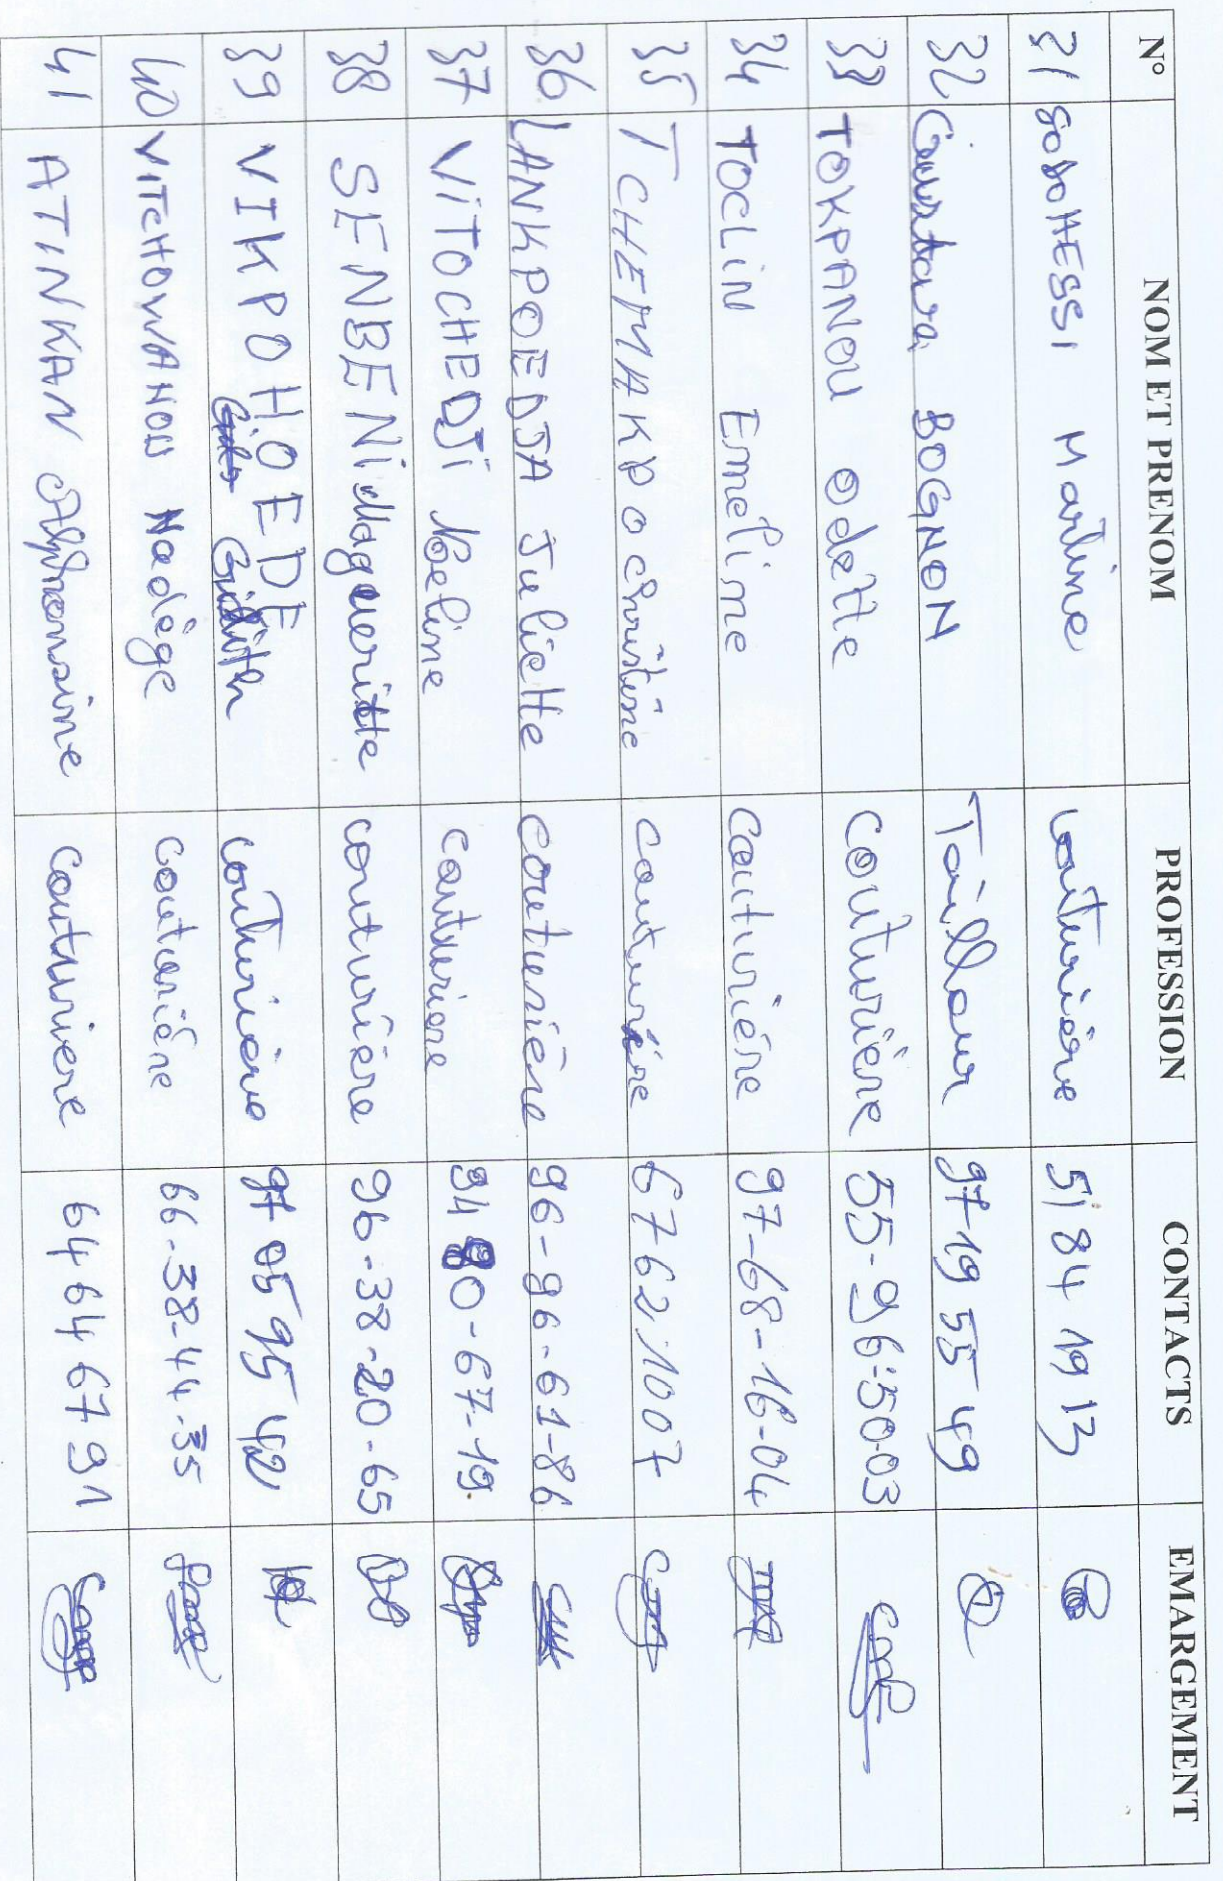 N° NOM ET PRENOM PROFESSION CONTACTS EMARGEMENT
31 SODOHESSI Martine couturière 51 84 19 13
32 BOGNON Tailleur 97-19 55 49
33 TOKPANOU Odette Couturière 55-96-50-03
34 TOCLIN Emeline Couturière 97-68-16-04
35 TCHEMAKPO Christine couturière 67 62 10 07
36 LANKPOEDJA Juliette couturière 96-96-61-86
37 VITOCHEDJI couturiere 94 80-67-19
38 SENBENI Magueritte couturière 96-38-20-65
39 VIKPOHOEDE couturière 97 05 95 42
40 VITCHOWANOU Nadège couturiére 66-38-44-35
41 ATINKAN Alphonsine couturiere 64 64 67 91